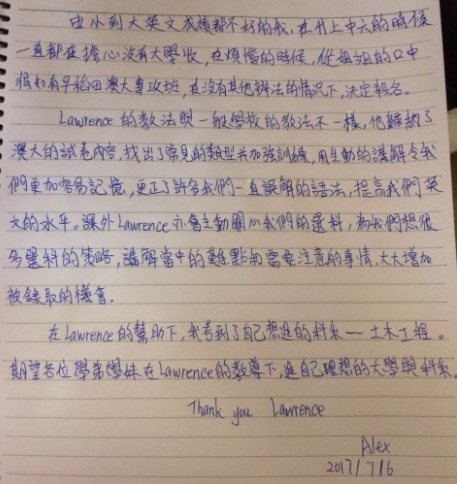 由小到大英文成績都不好的我,在升上中六的時候
一直都在擔心沒有大學收,在煩惱的時候,從姐姐的口中
得知有早稻田澳大專攻班,在沒有其他辦法的情況下,決定報名。
Lawrence 的教法與一般學校的教法不一樣,他歸納了
澳大的試卷內容,找出了常見的類型並加強訓練,用生動的講解令我
們更加容易記憶,更正了許多我們一直誤解的語法,提高我們英
文的水平。課外Lawrence亦會主動關心我們的選科,為我們想很
多選科的策略,講解當中的難點和需要注意的事情,大大增加
被錄取的機會。
在Lawrence的幫助下,我考到了自己想進的科系—土木工程。
期望各位學弟學妹在Lawrence的教導下,進自己理想的大學與科系。
Thank you Lawrence
Alex
2017/7/6